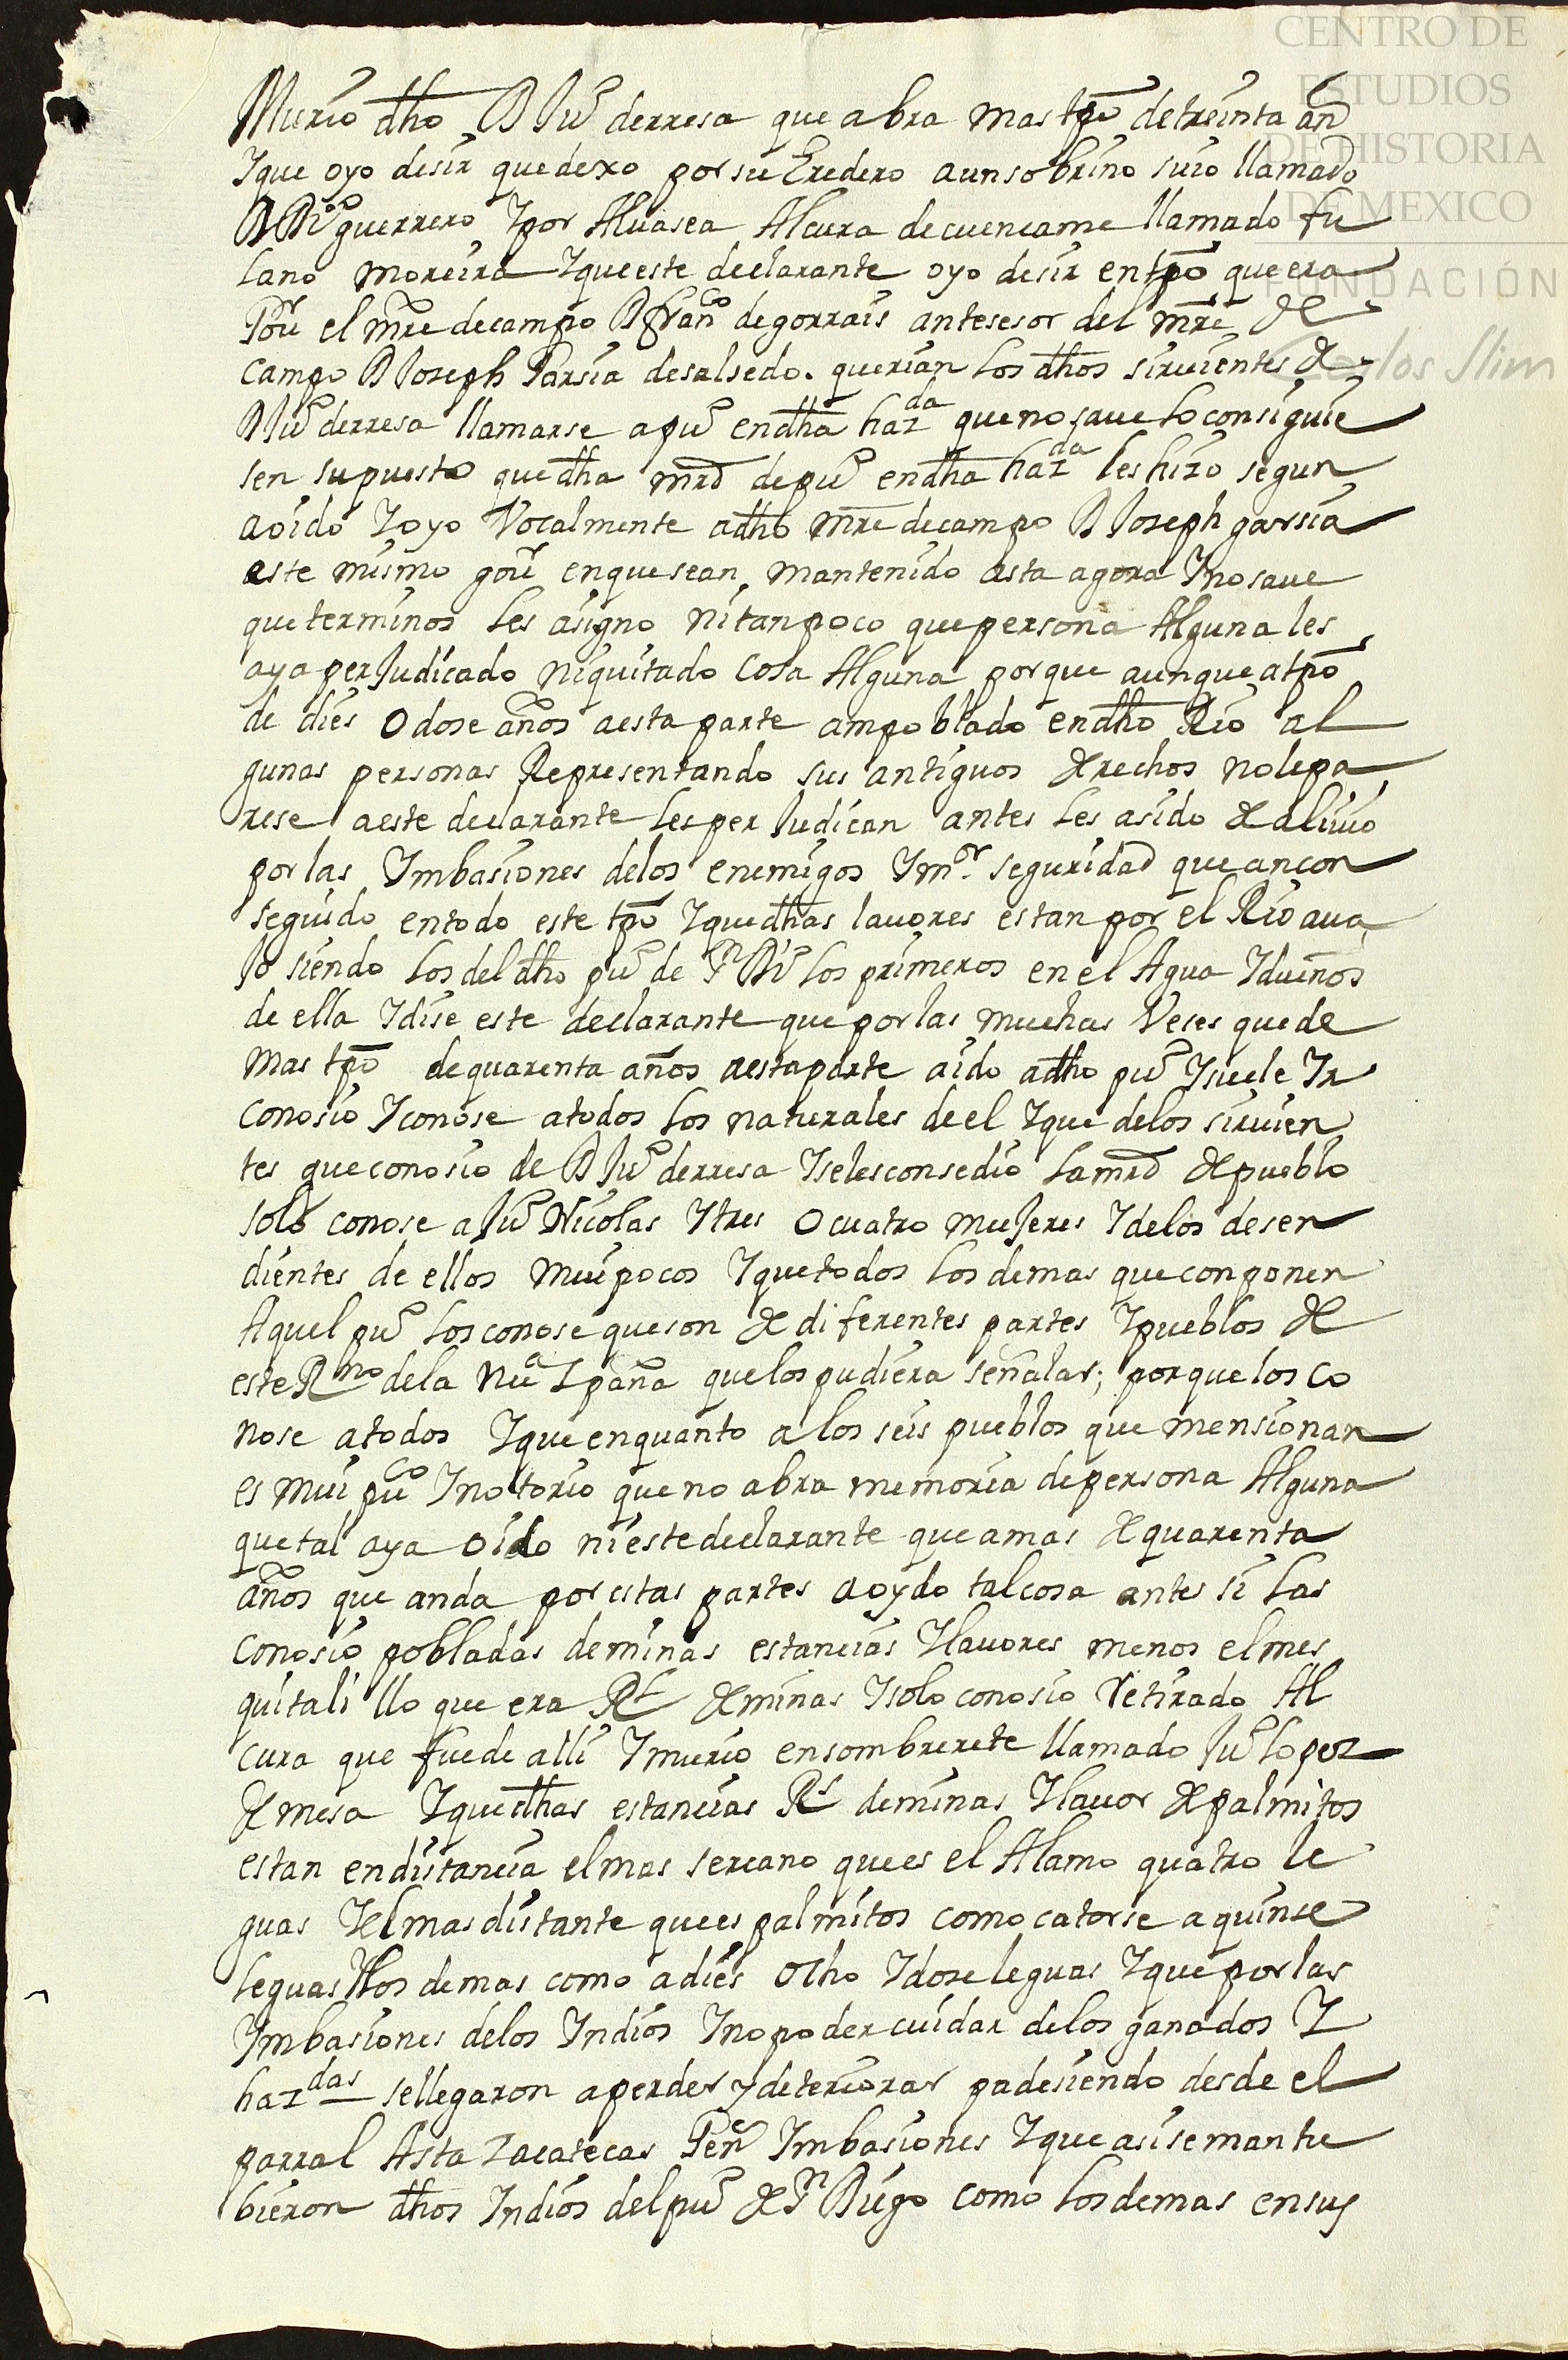 CENTRO DE
ESTUDIOS
DE HISTORIA
DE MEXICO
FUNDACIÓN
Carlos Slim
Murio dho D Juo derresa que abra mas tpo de treinta añ
Ique oyo desir quedexo por su Eredero aunsobrino suio llamado
D Dio guerrero Ipor Aluasea Alcura decuencame llamado fu
lano moreira Ique este declarante oyo desir entpo que era
Gour el mre decampo D franco degorrais antesesor del mre de
campo D Joseph Garsia desalsedo. querian los dhos siruientes de
D Juo derresa llamarse apuo endha hazda que no saue lo consiguie
sen supuesto que dha mrd depuo endha hazda les hizo segun
aoido Ioyo Vocalmente adho mre decampo D Joseph garsia
este mismo gour enquesean mantenido asta agora Ino saue
queterminos les asigno nitanpoco quepersona Alguna les
aya perJudicado niquitado cosa Alguna porque aunque atpo
de dies O dose años aesta parte ampoblado endho Rio al
gunas personas Representando sus antiguos derechos nolepa
rese aeste declarante lesperJudican antes les asido de aliuio
por las Ymbasiones delos enemigos Ymor seguridad que ancon
seguido entodo este tpo Ique dhas lauores estan por el Rio aua
Jo siendo los del dho puo de Sn Dio los primeros en el Agua Idueños
de ella Idise este declarante que por las muchas Veses que de
mas tpo de quarenta años aestaparte aido adho puo Isuele Ir
conosio Iconose atodos los naturales de el Ique delos siruien
tes que conosio de D Juo derresa Iselesconsedio la mrd de pueblo
solo conose a Juo Nicolas Ytres O cuatro muJeres Idelos desen
dientes de ellos mui pocos Ique todos los demas que conponen
Aquel puo los conose que son de diferentes partes Ipueblos de
este Rno dela Nua España quelos pudiera señalar; porque los co
nose atodos Ique enquanto a los seis pueblos que mensionan
es mui puco Inotorio que no abra memoria depersona Alguna
que tal aya oido nieste declarante que amas de quarenta
años que anda por estas partes aoydo tal cosa antes si las
conosio pobladas deminas estancias Ylauores menos el mes
quitali llo que era Rl de minas Isolo conosio Retirado Al
cura que fue de alli Imurio ensombrerete llamado Juo lopez
de mesa Ique dhas estancias Rs deminas Ylauor de palmitos
estan endistancia el mas sercano que es el Alamo quatro le
guas Iel mas distante que es palmitos como catorse a quinse
leguas Ilos demas como a dies Ocho Idose leguas Ique por las
Ymbasiones delos Indios Ino poder cuidar delos ganados I
hazdas sellegaron aperder y deteriorar padesiendo desde el
parral Asta Zacatecas Genl Imbasiones Ique asi se mantu
bieron dhos Indios del puo de Sn Diego como los demas ensus